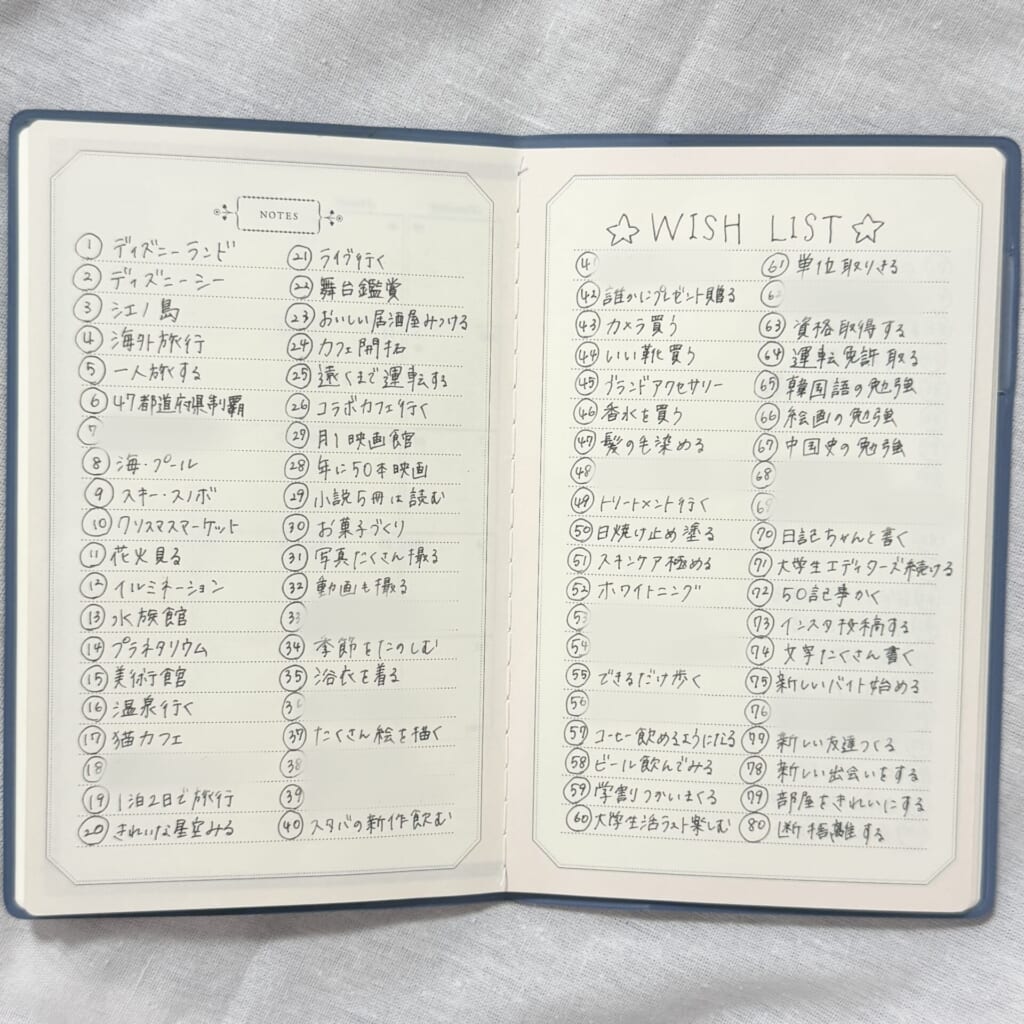 NOTES
① ディズニーランド
② ディズニーシー
③ 江ノ島
④ 海外旅行
⑤ 一人旅する
⑥ 47都道府県制覇
⑦
⑧ 海・プール
⑨ スキー・スノボ
⑩ クリスマスマーケット
⑪ 花火見る
⑫ イルミネーション
⑬ 水族館
⑭ プラネタリウム
⑮ 美術館
⑯ 温泉行く
⑰ 猫カフェ
⑱
⑲ 1泊2日で旅行
⑳ きれいな星空みる
㉑ ライヴ行く
㉒ 舞台鑑賞
㉓ おいしい居酒屋みつける
㉔ カフェ開拓
㉕ 遠くまで運転する
㉖ コラボカフェ行く
㉗ 月1映画館
㉘ 年に50本映画
㉙ 小説5冊は読む
㉚ お菓子づくり
㉛ 写真たくさん撮る
㉜ 動画も撮る
㉝
㉞ 季節をたのしむ
㉟ 浴衣を着る
㊲ たくさん絵を描く
㊳
㊴
㊵ スタバの新作飲む
☆ WISH LIST ☆
㊷ 誰かにプレゼント贈る
㊸ カメラ買う
㊹ いい靴買う
㊺ ブランドアクセサリー
㊻ 香水を買う
㊼ 髪の毛染める
㊽
㊾ トリートメント行く
㊿ 日焼け止め塗る
51 スキンケア極める
52 ホワイトニング
54
55 できるだけ歩く
56
57 コーヒー飲めるようになる
58 ビール飲んでみる
59 学割つかいまくる
60 大学生活ラスト楽しむ
61 単位取りきる
63 資格取得する
64 運転免許取る
65 韓国語の勉強
66 絵画の勉強
67 中国史の勉強
68
69
70 日記ちゃんと書く
71 大学生エディターズ続ける
72 50記事かく
73 インスタ投稿する
74 文字たくさん書く
75 新しいバイト始める
76
77 新しい友達つくる
78 新しい出会いをする
79 部屋をきれいにする
80 断捨離する